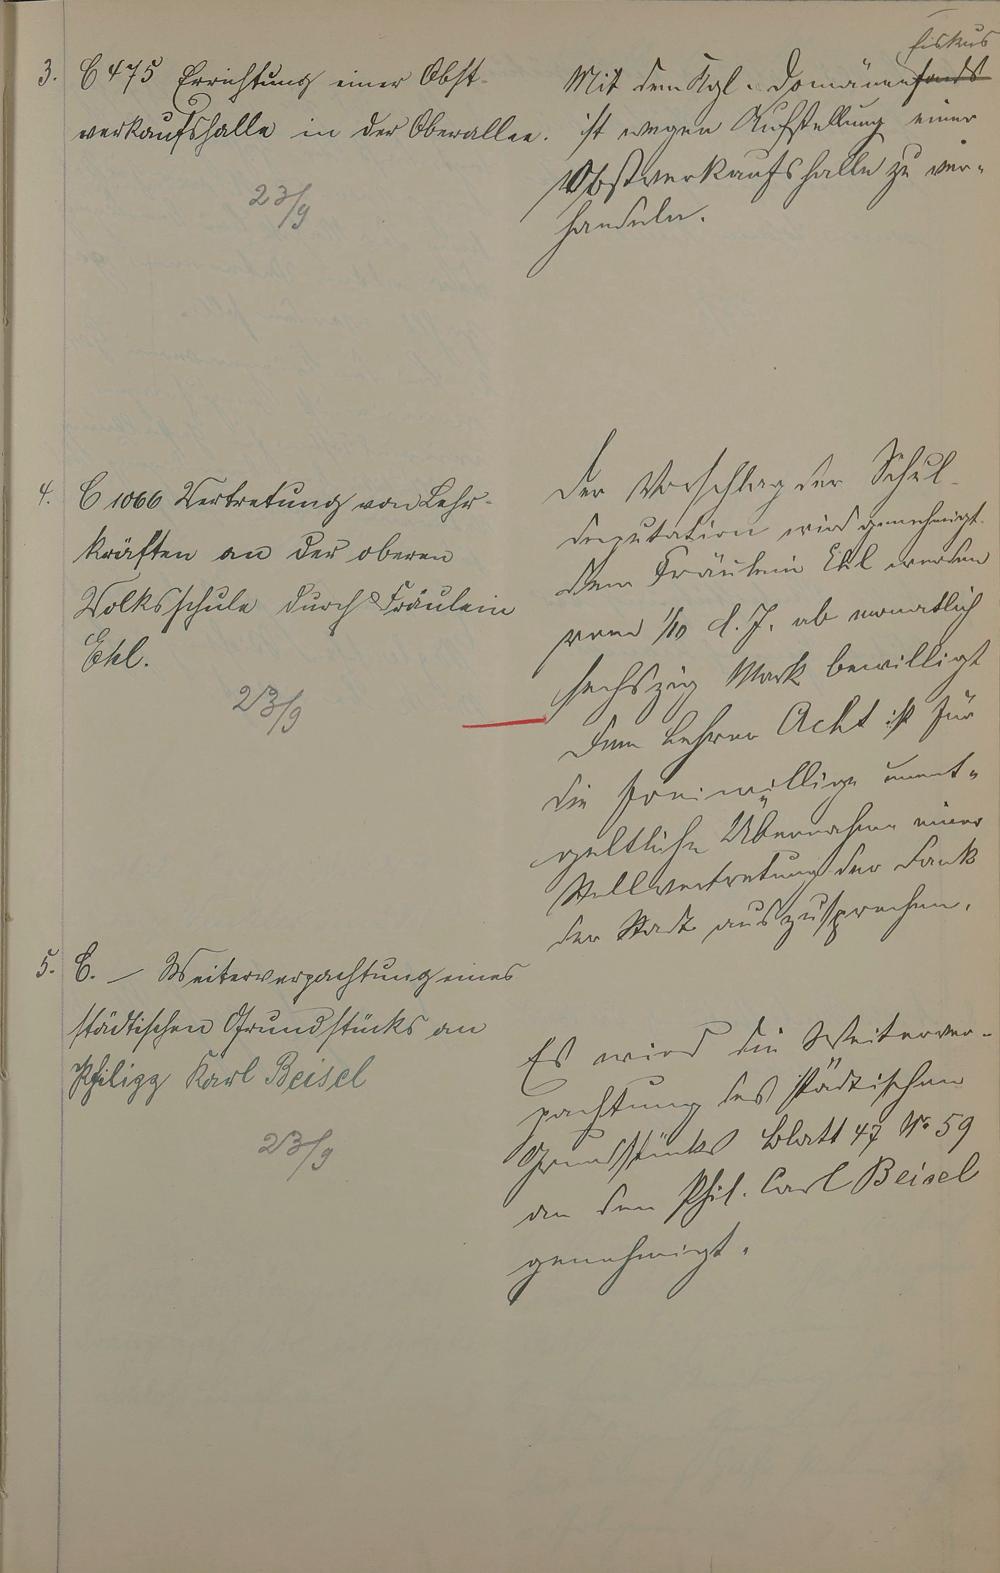 3. C 475 Errichtung einer Obst-
verkaufshalle in der Oberallee.
23/9
fiskus
Mit dem Kgl. Domänenfonds
ist wegen Aufstellung einer
Obstverkaufshalle zu ver-
handeln.
4. C 1066 Vertretung von Lehr-
kräften an der oberen
Volksschule durch Fräulein
Ekl.
23/9
Der Vorschlag der Schul-
deputation wird genehmigt.
Dem Fräulein Ekl werden
vom 1/10 d. J. ab monatlich
sechszig Mark bewilligt
Dem Lehrer Acht ist für
die freiwillige unent-
geltliche Übernahme einer
Stellvertretung der Dank
der Stadt auszusprechen.
5. C. — Weiterverpachtung eines
städtischen Grundstücks an
Philipp Karl Beisel
23/9
Es wird die Weiterver-
pachtung des städtischen
Grundstücks Blatt 47 No 59
an den Phil. Carl Beisel
genehmigt.